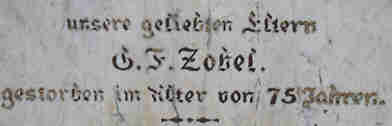 unsere geliebten Eltern
G. F. Zobel.
gestorben im Alter von 75 Jahren.